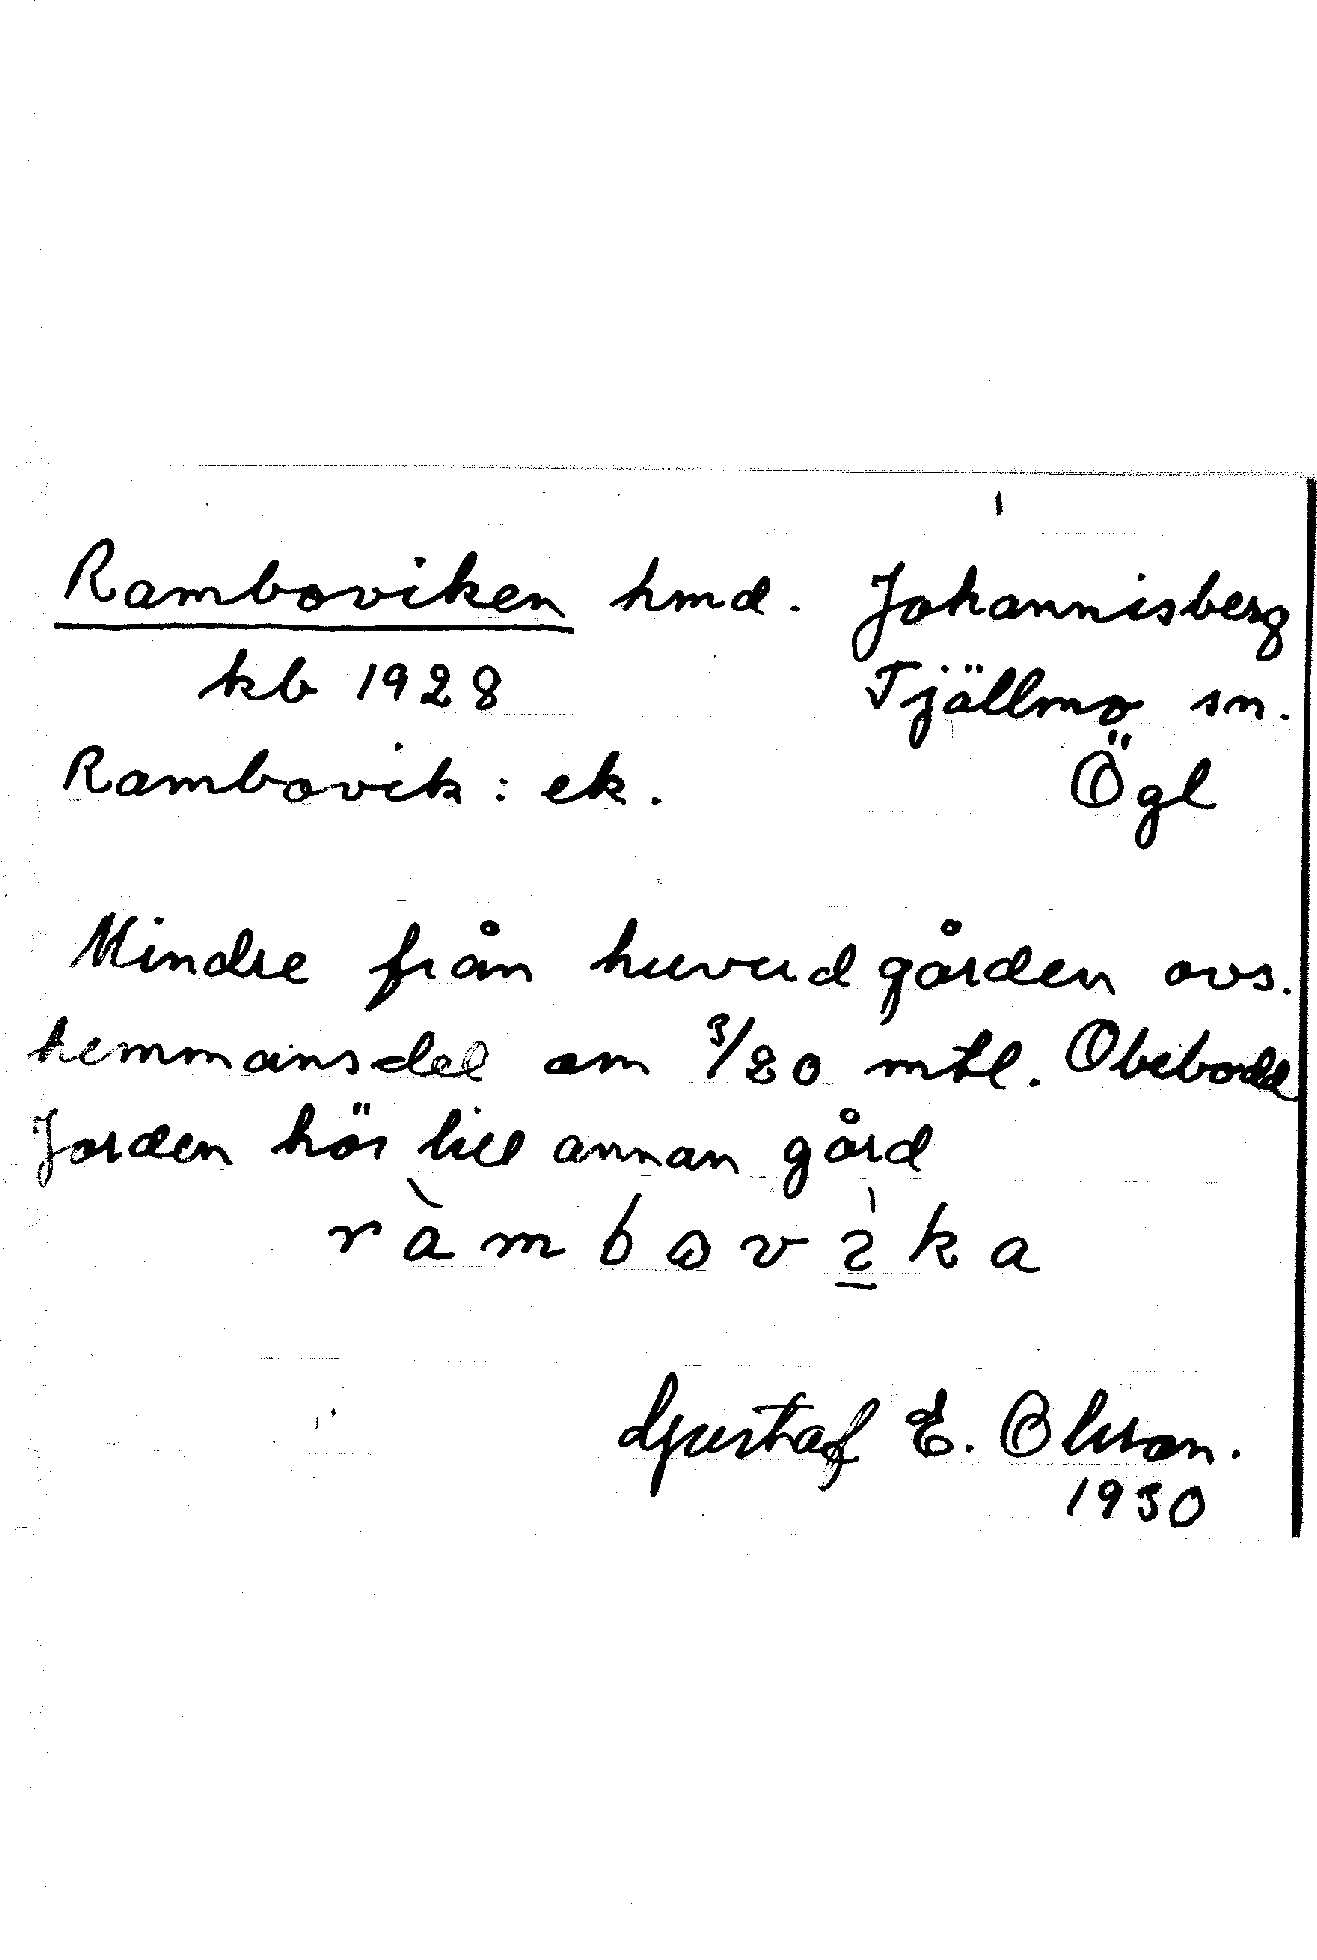 Ramboviken hmd. Johannisberg
kb 1928 Tjällmo sn.
Rambovik : ek. Ögl
Mindre från huvudgården avs.
hemmansdel om 3/80 mtl. Obebodd
Jorden hör till annan gård
Gustaf E. Olsson.
1930